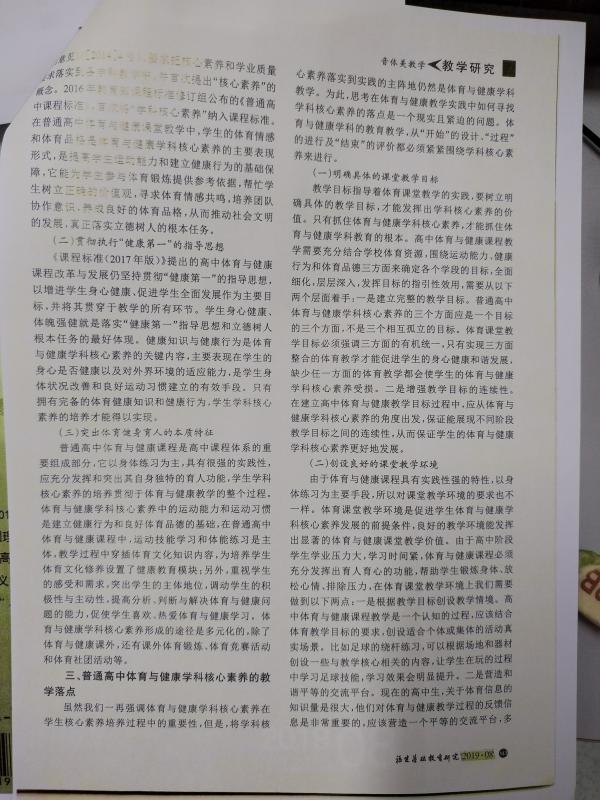 音体美教学 教学研究
的意见
核心素养和学业质量
求落实到各学科教学中,并首次提出“核心素养”的
概念。2016年教育部课程标准修订组公布的《普通高
中课程标准》,首次将“学科核心素养”纳入课程标准。
在普通高中体育与健康课堂教学中,学生的体育情感
和体育品格是体育与健康学科核心素养的主要表现
形式,是提高学生运动能力和建立健康行为的基础保
障,它能为学生参与体育锻炼提供参考依据,帮忙学
生树立正确的价值观,寻求体育情感共鸣,培养团队
协作意识,养成良好的体育品格,从而推动社会文明
的发展,真正落实立德树人的根本任务。
(二)贯彻执行“健康第一”的指导思想
《课程标准(2017年版)》提出的高中体育与健康
课程改革与发展仍坚持贯彻“健康第一”的指导思想,
以增进学生身心健康、促进学生全面发展作为主要目
标,并将其贯穿于教学的所有环节。学生身心健康、
体魄强健就是落实“健康第一”指导思想和立德树人
根本任务的最好体现。健康知识与健康行为是体育
与健康学科核心素养的关键内容,主要表现在学生的
身心是否健康以及对外界环境的适应能力,是学生身
体状况改善和良好运动习惯建立的有效手段。只有
拥有完备的体育健康知识和健康行为,学生学科核心
素养的培养才能得以实现。
(三)突出体育健身育人的本质特征
普通高中体育与健康课程是高中课程体系的重
要组成部分,它以身体练习为主,具有很强的实践性,
应充分发挥和突出其自身独特的育人功能,学生学科
核心素养的培养贯彻于体育与健康教学的整个过程,
体育与健康学科核心素养中的运动能力和运动习惯
是建立健康行为和良好体育品德的基础,在普通高中
体育与健康课程中,运动技能学习和体能练习是主
体,教学过程中穿插体育文化知识内容,为培养学生
体育文化修养设置了健康教育模块;另外,重视学生
的感受和需求,突出学生的主体地位,调动学生的积
极性与主动性,提高分析、判断与解决体育与健康问
题的能力,促使学生喜欢、热爱体育与健康学习。体
育与健康学科核心素养形成的途径是多元化的,除了
体育与健康课外,还有课外体育锻炼、体育竞赛活动
和体育社团活动等。
三、普通高中体育与健康学科核心素养的教
学落点
虽然我们一再强调体育与健康学科核心素养在
学生核心素养培养过程中的重要性,但是,将学科核
心素养落实到实践的主阵地仍然是体育与健康学科
教学。为此,思考在体育与健康教学实践中如何寻找
学科核心素养的落点是一个现实且紧迫的问题。体
育与健康学科的教育教学,从“开始”的设计、“过程”
的进行及“结束”的评价都必须紧紧围绕学科核心素
养来进行。
(一)明确具体的课堂教学目标
教学目标指导着体育课堂教学的实践,要树立明
确具体的教学目标,才能发挥出学科核心素养的价
值。只有抓住体育与健康学科核心素养,才能抓住体
育与健康学科教育的根本。高中体育与健康课程教
学需要充分结合学校体育资源,围绕运动能力、健康
行为和体育品德三方面来确定各个学段的目标,全面
细化,层层深入,发挥目标的指引性效用,需要从以下
两个层面着手:一是建立完整的教学目标。普通高中
体育与健康学科核心素养的三个方面应是一个目标
的三个方面,不是三个相互孤立的目标。体育课堂教
学目标必须强调三方面的有机统一,只有实现三方面
整合的体育教学才能促进学生的身心健康和谐发展,
缺少任一方面的体育教学都会使学生的体育与健康
学科核心素养受损。二是增强教学目标的连续性。
在建立高中体育与健康教学目标过程中,应从体育与
健康学科核心素养的角度出发,保证能展现不同阶段
教学目标之间的连续性,从而保证学生的体育与健康
学科核心素养更好地发展。
(二)创设良好的课堂教学环境
由于体育与健康课程具有实践性强的特性,以身
体练习为主要手段,所以对课堂教学环境的要求也不
一样。体育课堂教学环境是促进学生体育与健康学
科核心素养发展的前提条件,良好的教学环境能发挥
出显著的体育与健康课堂教学价值。由于高中阶段
学生学业压力大,学习时间紧,体育与健康课程必须
充分发挥出育人育心的功能,帮助学生锻炼身体、放
松心情、排除压力,在体育课堂教学环境上我们需要
做到以下两点:一是根据教学目标创设教学情境。高
中体育与健康课程教学是一个认知的过程,应该结合
体育教学目标的要求,创设适合个体或集体的活动真
实场景。比如足球的绕杆练习,可以根据场地和器材
创设一些与教学核心相关的内容,让学生在玩的过程
中学习足球技能,学习效果会明显提升。二是营造和
谐平等的交流平台。现在的高中生,关于体育信息的
知识量是很大,他们对体育与健康教学过程的反馈信
息是非常重要的,应该营造一个平等的交流平台,多
福建基础教育研究 2019·08